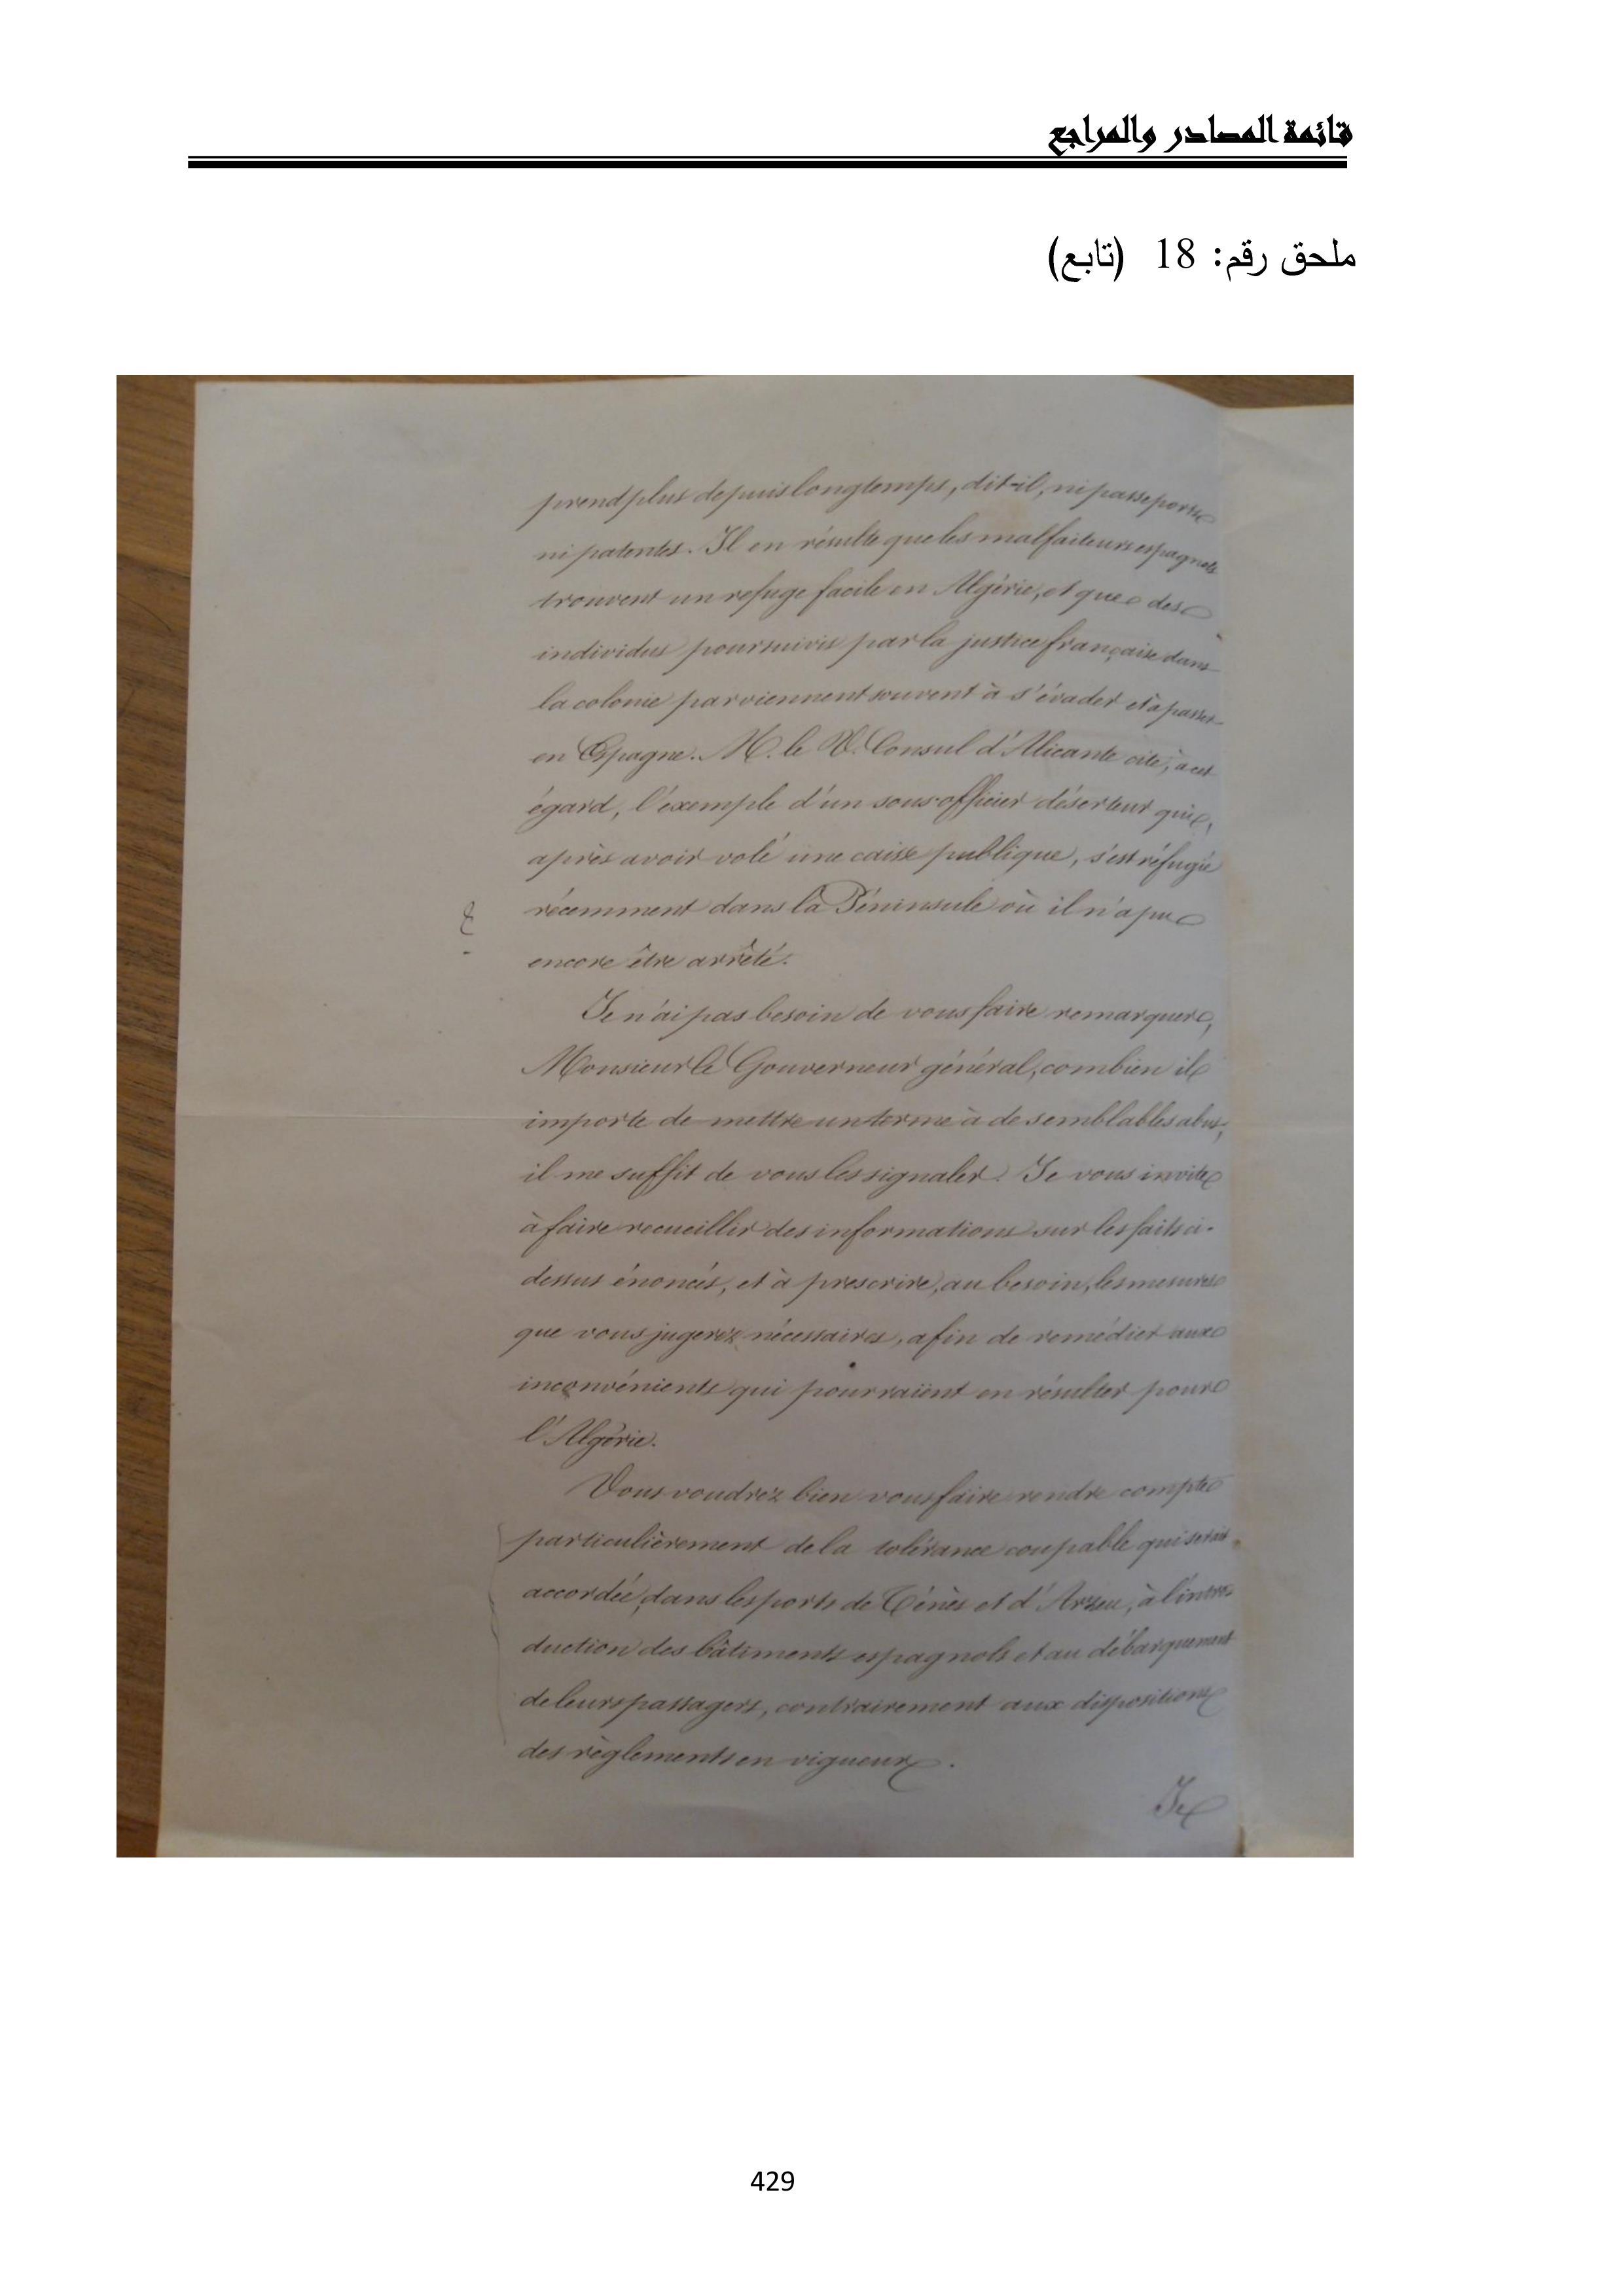 قائمة المصادر والمراجع
ملحق رقم: 18 (تابع)
prend plus depuis longtemps, dit-il, ni passeports
ni patentes. Il en résulte que les malfaiteurs espagnols
trouvent un refuge facile en Algérie, et que des
individus poursuivis par la justice française dans
la colonie parviennent souvent à s'évader et à passer
en Espagne. M. le V. Consul d'Alicante cite, à cet
égard, l'exemple d'un sous-officier déserteur qui,
après avoir volé une caisse publique, s'est réfugié
récemment dans la Péninsule où il n'a pu
encore être arrêté.
Je n'ai pas besoin de vous faire remarquer,
Monsieur le Gouverneur général, combien il
importe de mettre un terme à de semblables abus;
il me suffit de vous les signaler. Je vous invite
à faire recueillir des informations sur les faits ci-
dessus énoncés, et à prescrire, au besoin, les mesures
que vous jugerez nécessaires, afin de remédier aux
inconvénients qui pourraient en résulter pour
l'Algérie.
Vous voudrez bien vous faire rendre compte
particulièrement de la tolérance coupable qui serait
accordée, dans les ports de Ténès et d'Arzeu, à l'intro
duction des bâtiments espagnols et au débarquement
de leurs passagers, contrairement aux dispositions
des règlements en vigueur.
Je
429